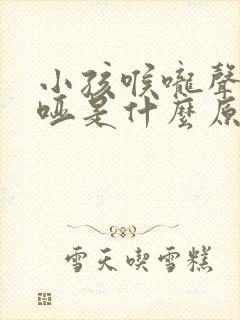 小孩喉嚨聲
啞是什麼原
雪天喫雪糕